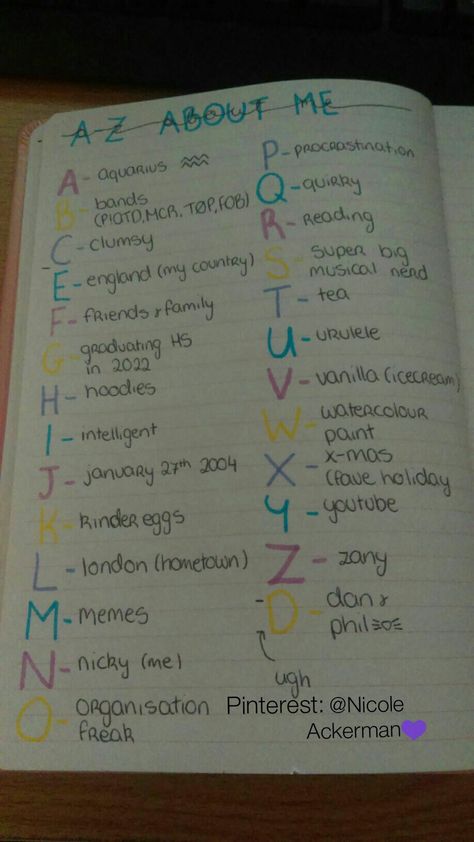 A-Z ABOUT ME
A - aquarius
B - bands
(P!ATD, MCR, TØP, FOB)
C - clumsy
E - england (my country)
F - friends & family
G - graduating HS
in 2022
H - hoodies
I - intelligent
J - january 27th 2004
K - kinder eggs
L - london (hometown)
M - memes
N - nicky (me)
O - organisation
freak
P - procrastination
Q - quirky
R - reading
S - super big
musical nerd
T - tea
U - ukulele
V - vanilla (icecream)
W - watercolour
paint
X - x-mas
(fave holiday
Y - youtube
Z - zany
- D - dan &
phil
ugh
Pinterest: @Nicole
Ackerman💜